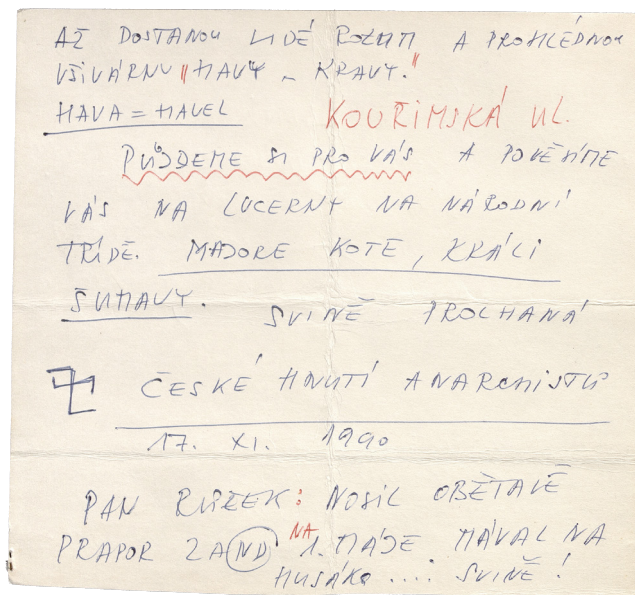 AŽ DOSTANOU LIDÉ ROZUM A PROHLÉDNOU
VŠIVÁRNU "HAVY – KRAVY."
HAVA = HAVEL KOUŘIMSKÁ UL.
PŮJDEME SI PRO VÁS A POVĚSÍME
VÁS NA LUCERNY NA NÁRODNÍ
TŘÍDĚ. MAJORE KOTE, KRÁLI
ŠUMAVY.
SVINĚ PROLHANÁ
ČESKÉ HNUTÍ ANARCHISTŮ
17. XI. 1990
PAN : NOSIL OBĚTAVĚ
PRAPOR ZA ND NA 1. MÁJE MÁVAL NA
HUSÁKA .... SVINĚ!